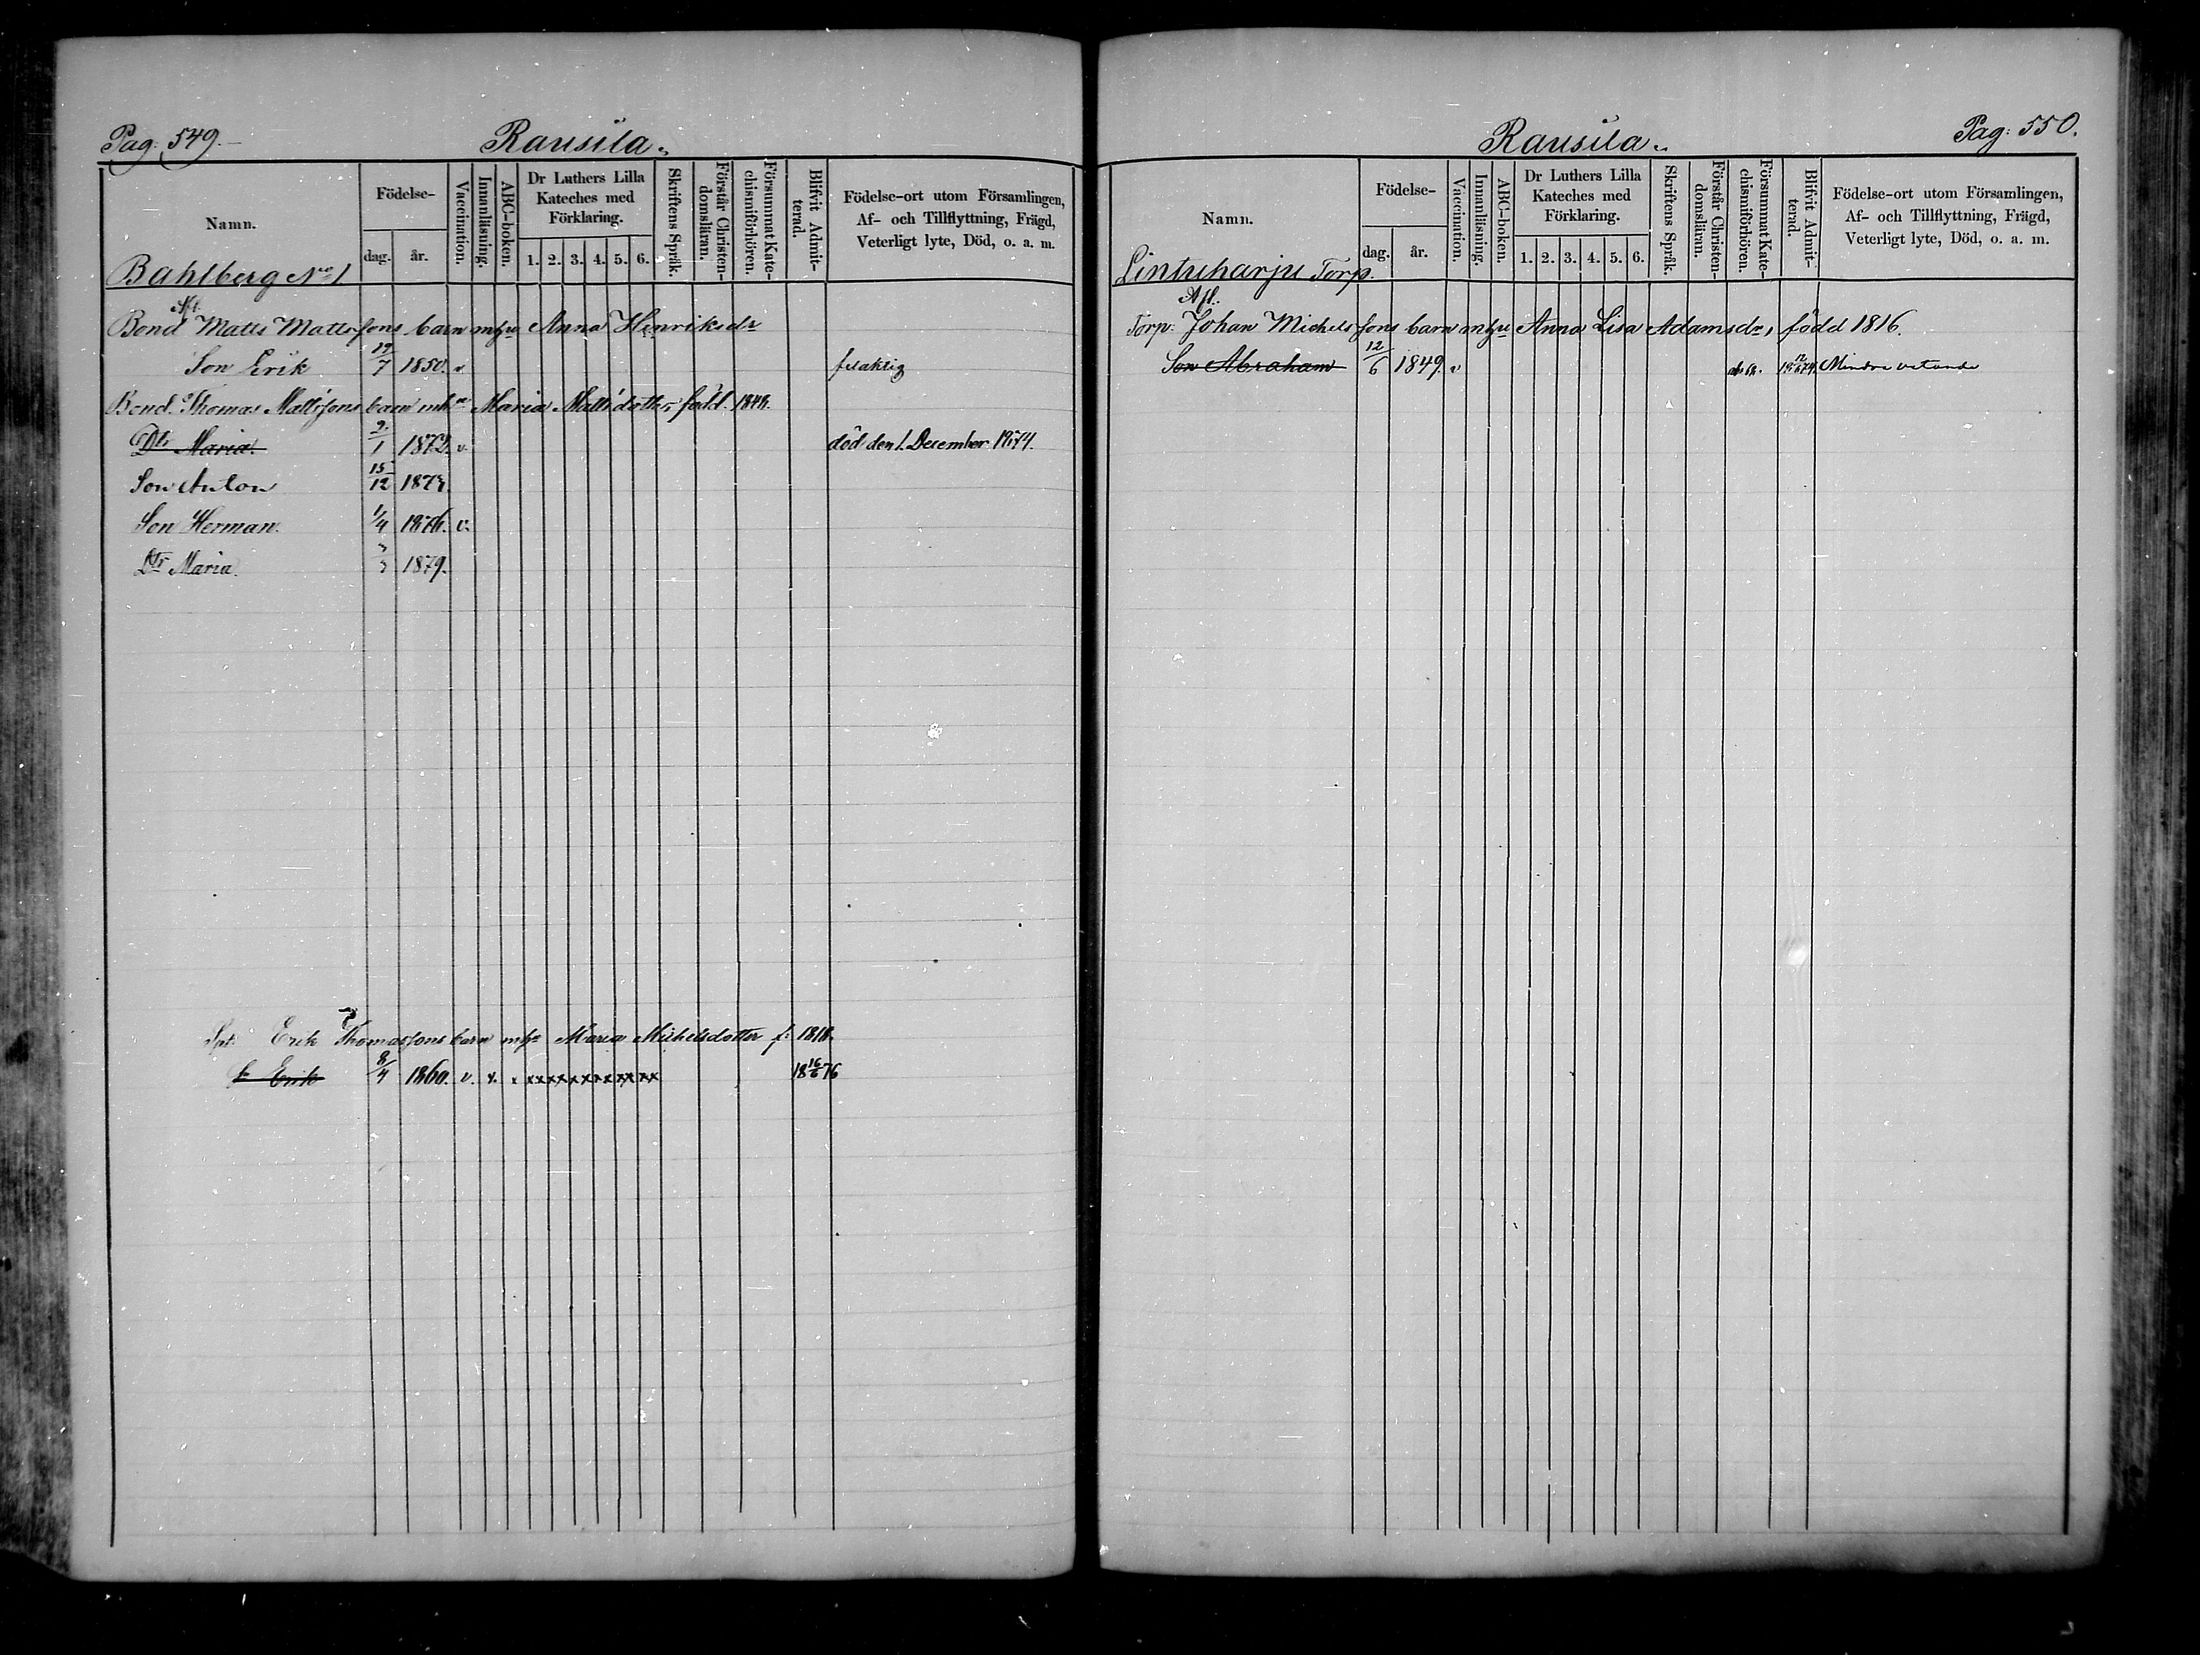 Pag: 549.
Rausila.
Namn.
Födelse-
dag.
år.
Vaccination.
Innanläsning.
ABC-boken.
Dr Luthers Lilla
Kateches med
Förklaring.
1. 2. 3. 4. 5. 6.
Skriftens Språk.
Förstår Christen-
domsläran.
Försummat Kate-
chismiförhören.
Blifvit Admit-
terad.
Födelse-ort utom Församlingen,
Af- och Tillflyttning, Frägd,
Veterligt lyte, Död, o. a. m.
Bahlberg No 1
Afl.
Bond Matts Mattsfons barn mhu Anna Henriksdr
Son Erik 19/7 1850. v
Bond. Thomas Mattsfons barn Maria Mattsdotter, född.
Dtr Maria. 2/1 1872. v. död den 1. December 1874.
Son Anton 15/12
Son Herman. 1/4 1876. v.
Dtr Maria. 1879.
Erik Thomasfons barn Maria Michelsdotter f: 1818.
Erik 8/4 1860. v. x. x xx xx xx xx xx xx 18 16/6 76
Pag: 550.
Rausila.
Namn.
Födelse-
dag.
år.
Vaccination.
Innanläsning.
ABC-boken.
Dr Luthers Lilla
Kateches med
Förklaring.
1. 2. 3. 4. 5. 6.
Skriftens Språk.
Förstår Christen-
domsläran.
Försummat Kate-
chismiförhören.
Blifvit Admit-
terad.
Födelse-ort utom Församlingen,
Af- och Tillflyttning, Frägd,
Veterligt lyte, Död, o. a. m.
Lintuharju Torp.
Afl.
Torp: Johan Michelsfons barn mhu Anna Lisa Adamsdr, född 1816.
Son Abraham 12/6 1849. v Mindre vetande